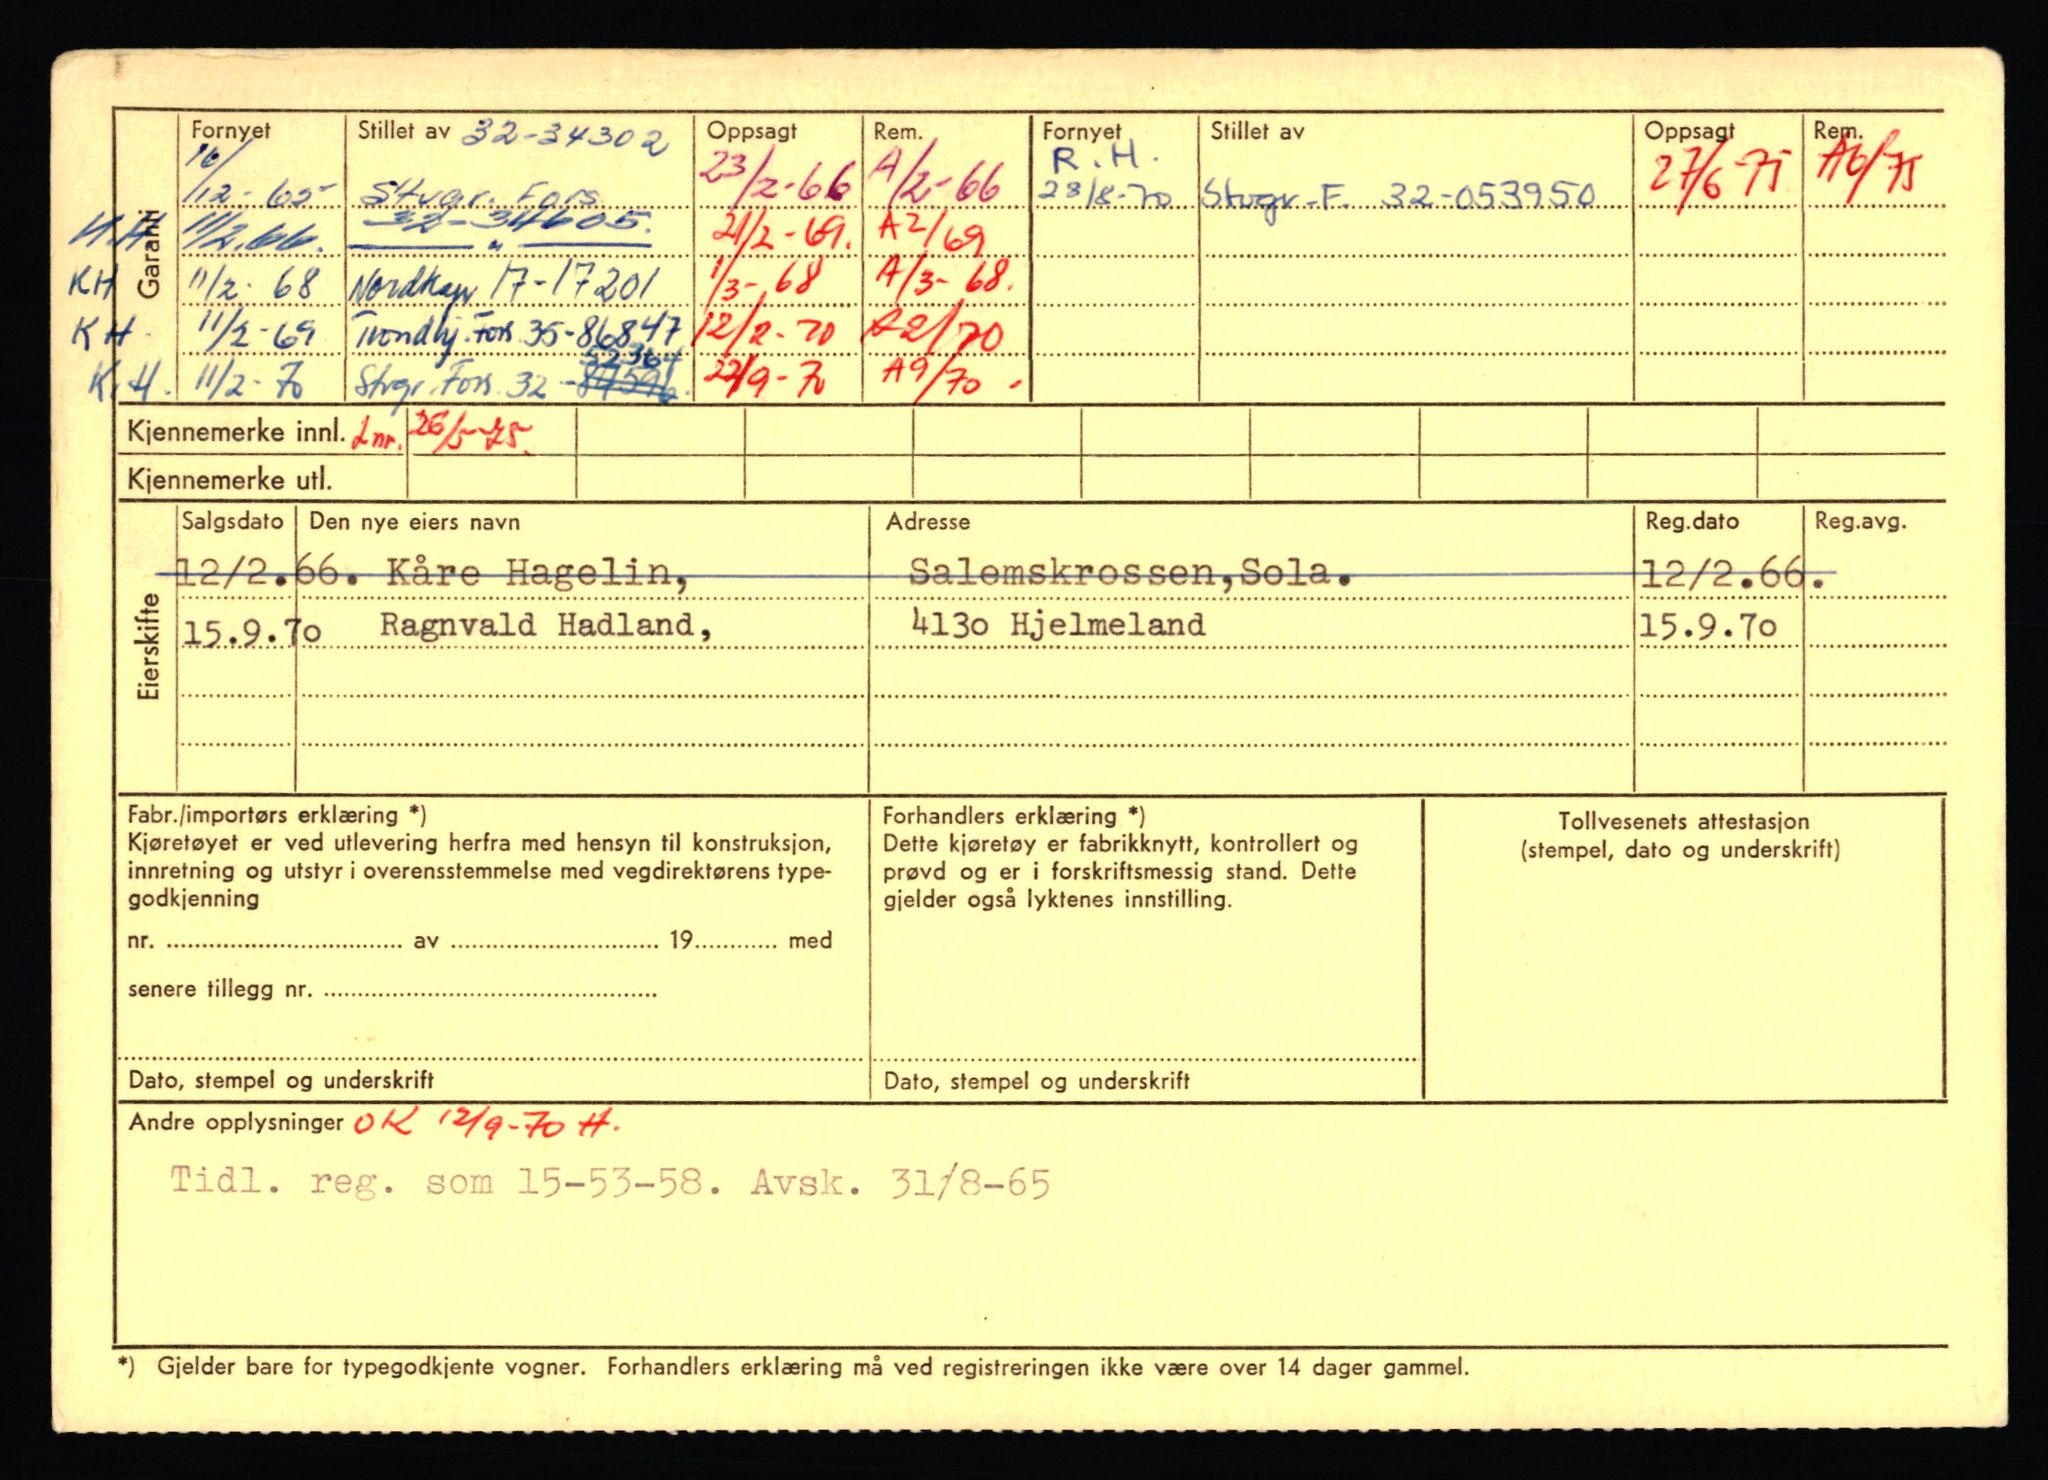 Garanti
Fornyet Stillet av 32-34302 Oppsagt Rem. Fornyet Stillet av Oppsagt Rem.
16/12-65 Stvgr. Fors 23/2-66 A/2-66 R.H. 28/8-70 Stvgr-F. 32-053950 27/6-75 A6/75
H.H 11/2.66. 32-34605. " 21/2-69. A2/69
KH 11/2-68 Nordkap 17-17201 1/3-68 A/3-68.
KH. 11/2-69 Trondhj. Fors. 35-86847 12/2-70 A2/70
K.H. 11/2-70 Stvgr. Fors. 32- 52364 22/9-70 A9/70.
Kjennemerke innl. Lnr. 26/5-75.
Kjennemerke utl.
Eierskifte
Salgsdato Den nye eiers navn Adresse Reg.dato Reg.avg.
12/2.66. Kåre Hagelin, Salemskrossen,Sola. 12/2.66.
15.9.7o Ragnvald Hadland, 413o Hjelmeland 15.9.7o
Fabr./importørs erklæring *)
Kjøretøyet er ved utlevering herfra med hensyn til konstruksjon,
innretning og utstyr i overensstemmelse med vegdirektørens type-
godkjenning
nr. ........ av ........ 19........ med
senere tillegg nr. ........
Dato, stempel og underskrift
Forhandlers erklæring *)
Dette kjøretøy er fabrikknytt, kontrollert og
prøvd og er i forskriftsmessig stand. Dette
gjelder også lyktenes innstilling.
Dato, stempel og underskrift
Tollvesenets attestasjon
(stempel, dato og underskrift)
Andre opplysninger OK 12/9-70 H.
Tidl. reg. som 15-53-58. Avsk. 31/8-65
*) Gjelder bare for typegodkjente vogner. Forhandlers erklæring må ved registreringen ikke være over 14 dager gammel.